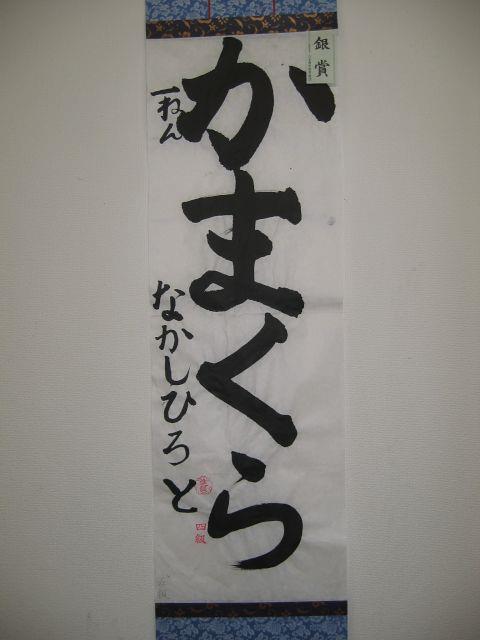 銀賞
かまくら
一ねん
なかしひろと
四級